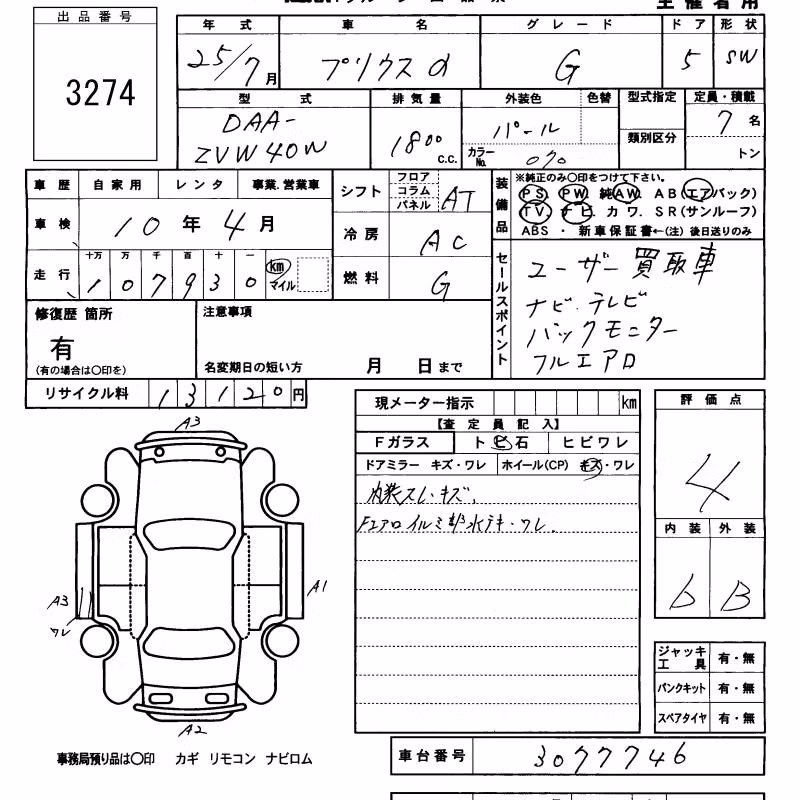 主催者用
出品番号
3274
年式 車名 グレード ドア 形状
25/7月 プリウスα G 5 SW
型式 排気量 外装色 色替 型式指定 定員・積載
DAA-
ZVW40W
1800 C.C.
パール
カラーNo. 070
類別区分
7名
トン
車歴 自家用 レンタ 事業.営業車
車検 10年4月
走行 十万 万 千 百 十 一
107930 km マイル
シフト フロア コラム パネル AT
冷房 AC
燃料 G
装備品
※純正のみ○印をつけて下さい。
PS PW 純AW. AB(エアバック)
TV. ナビ. カワ. SR(サンルーフ)
ABS ・ 新車保証書←(注) 後日送りのみ
セールスポイント
ユーザー買取車
ナビ.テレビ
バックモニター
フルエアロ
修復歴 箇所
有
(有の場合は○印を)
注意事項
名変期日の短い方 月 日まで
リサイクル料 13120円
現メーター指示 km
【査定員記入】
Fガラス トビ石 ヒビワレ
ドアミラー キズ・ワレ ホイール(CP) キズ・ワレ
内装スレ・キズ、
評価点
4
内装 外装
b B
A3
A3
ワレ
A1
A2
ジャッキ工具 有・無
パンクキット 有・無
スペアタイヤ 有・無
事務局預り品は○印 カギ リモコン ナビロム
車台番号 3077746